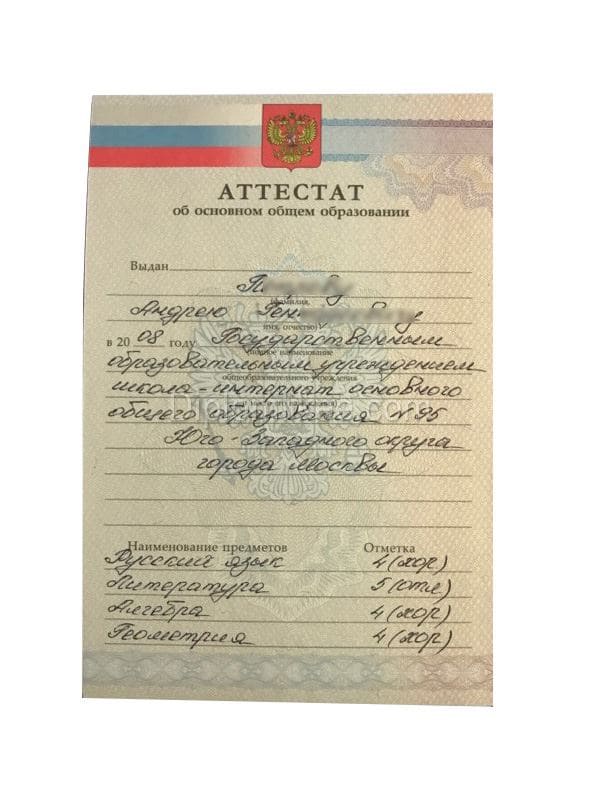 АТТЕСТАТ
об основном общем образовании
Выдан
(фамилия,
Андрею
имя, отчество)
в 2008 году Государственным
(полное наименование
образовательным учреждением
общеобразовательного учреждения
школа-интернат основного
общего образования №95
Юго-Западного округа
города Москвы
Наименование предметов Отметка
Русский язык 4(хор)
Литература 5(отл)
Алгебра 4(хор)
Геометрия 4(хор)